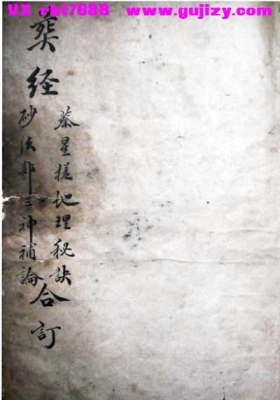 VX xht7688 www.gujizy.com
葬经
蔡星槎地理秘訣
砂法部三神補論
合訂